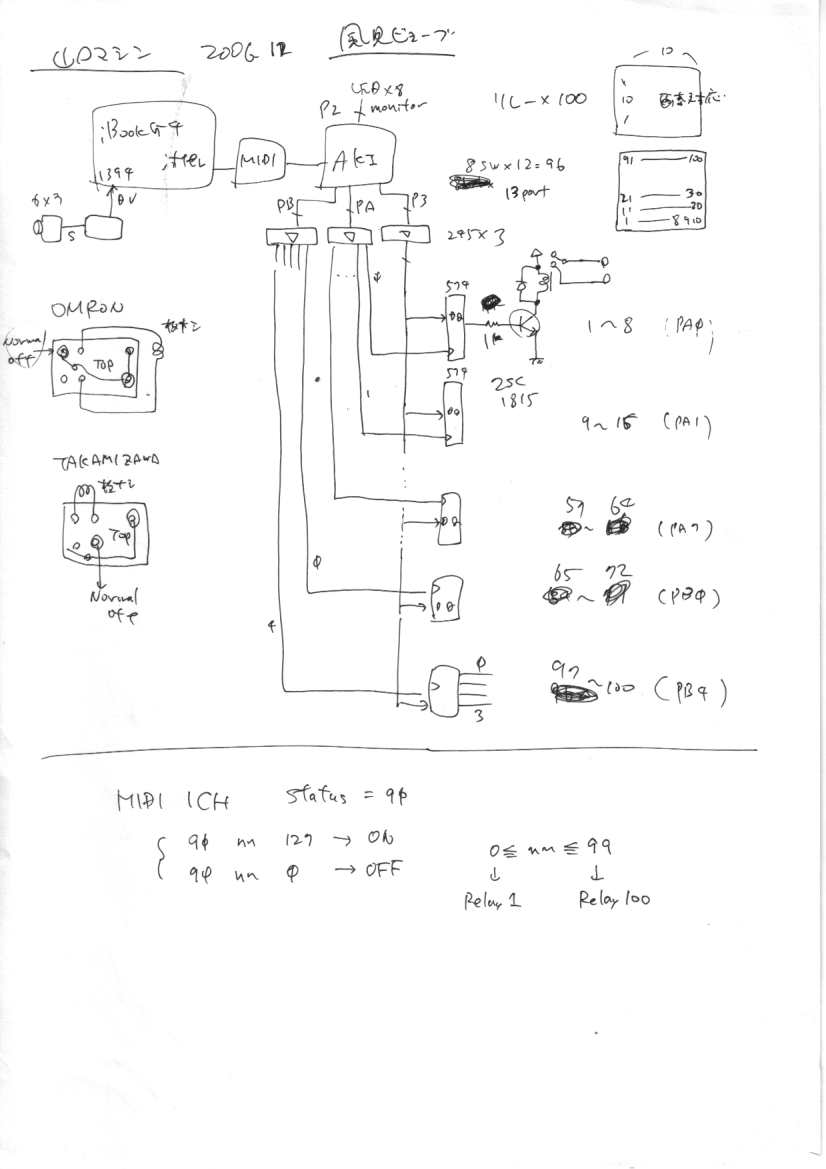 山口マシン 2006 12 風見ビューブ
LED×8
P2 monitor
リレー×100
10
10
画素対応…
iBook G4
1394
DV
MIDI
AKI
8 SW×12=96
13 port
91 100
21 30
11 20
1 8 9 10
S
PB PA P3
245×3
φ
574
1k
1~8 (PAφ)
OMRON
Normal
off
TOP
574
2SC
1815
1
9~16 (PA1)
TAKAMIZAWA
Top
Normal
off
57~64 (PA7)
φ
65~72 (PBφ)
4
φ
3
97~100 (PB4)
MIDI 1CH Status = 9φ
9φ nn 127 → ON
9φ nn φ → OFF
0≦ nn ≦99
↓ ↓
Relay 1 Relay 100